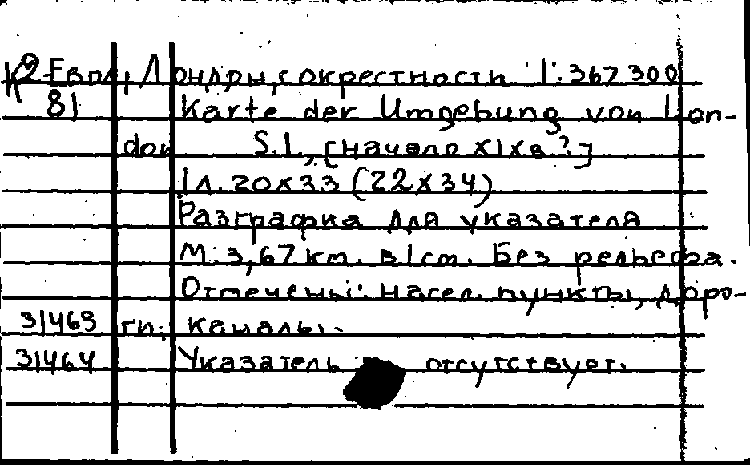 К2 Евол, Лондон, окрестности 1:367 300
81 Karte der Umgebung von Lon-
don S.l., [начало XIXв?]
1л. 20х33 (22х34)
Разграфка для указателя
М: 3,67 km. в1cm. Без рельефа.
Отмечены: насел. пункты, доро-
31463 ги, каналы.
31464 Указатель отсутствует.